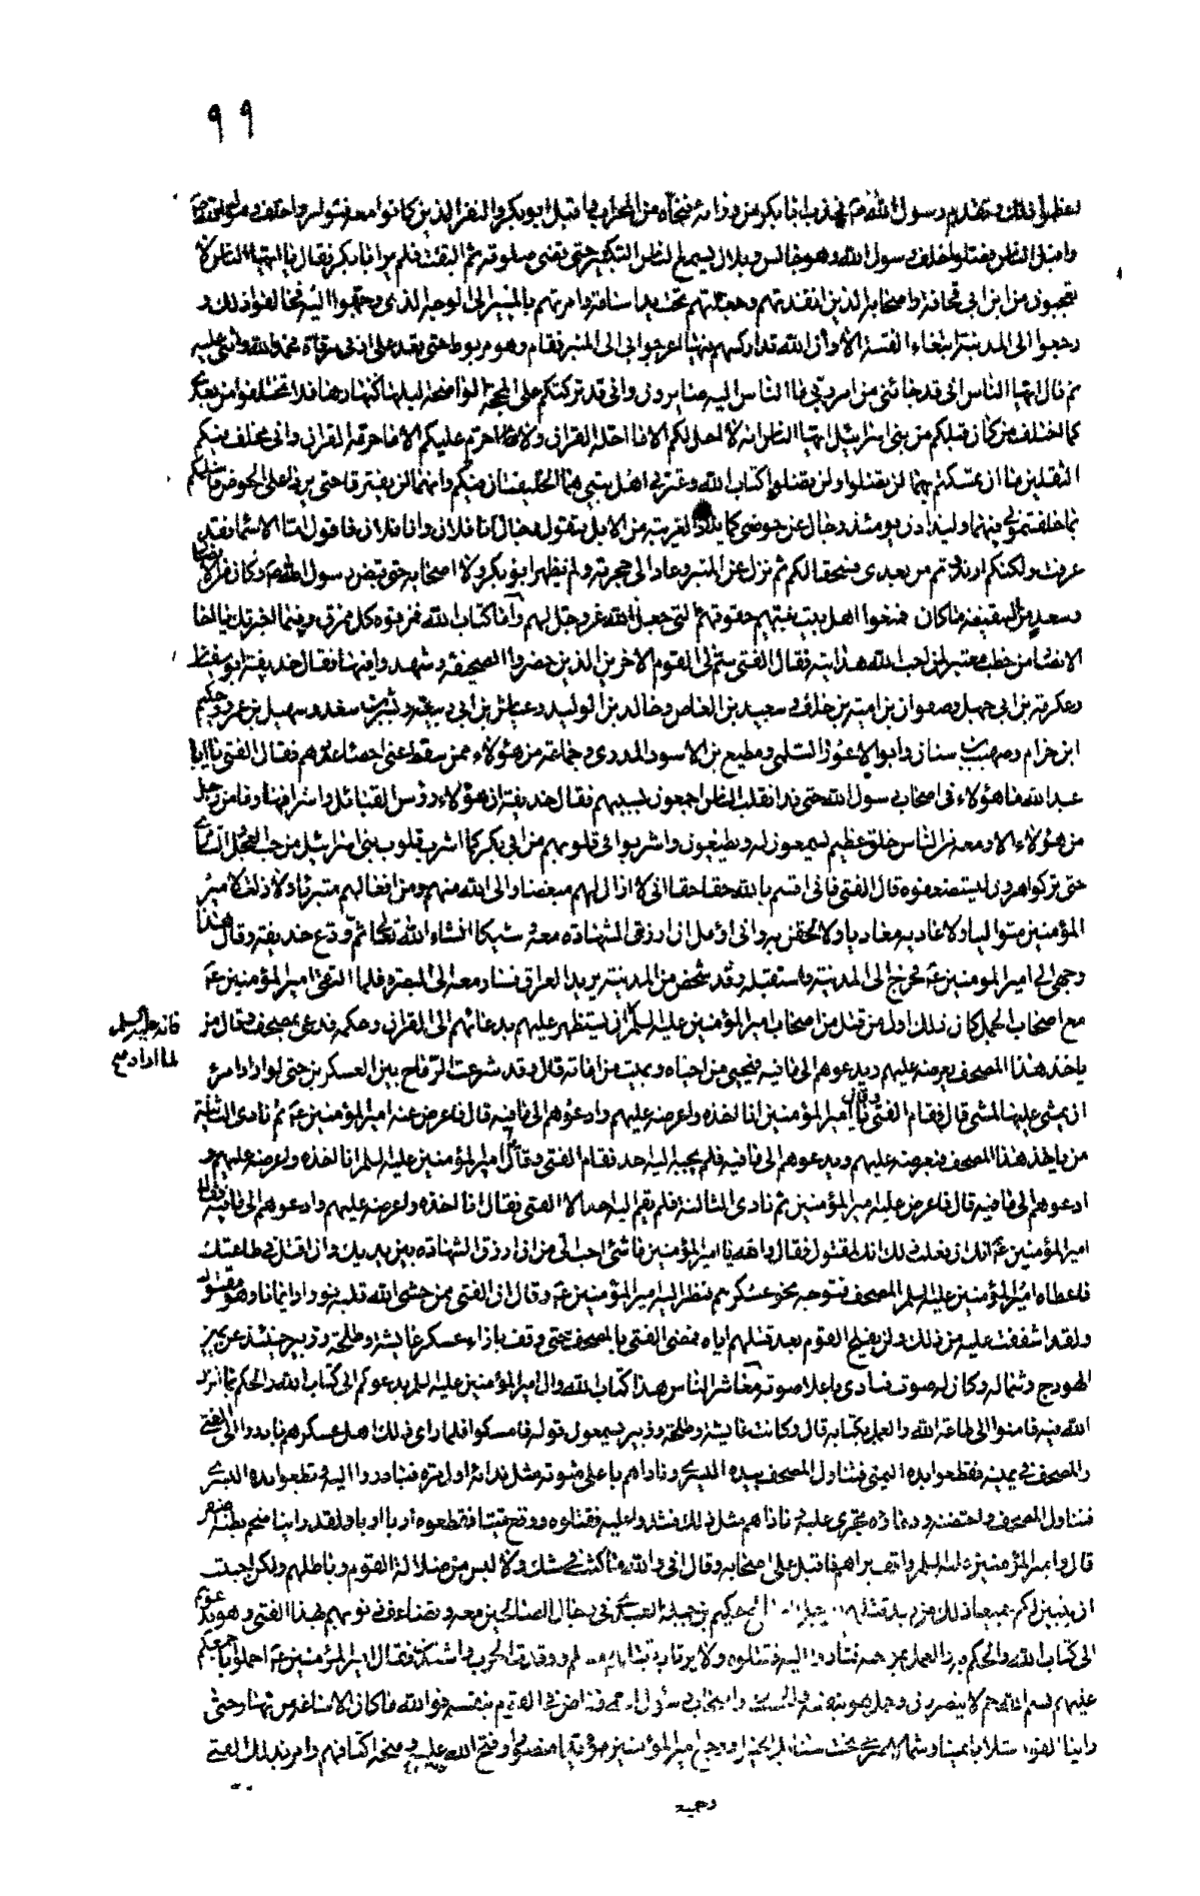 ٩٩
وتقدم رسول الله فجذب ابا بكر من ردائه فنحاه عن المحراب واقبل ابو بكر والنفر الذين كانوا معه فتواروا خلف رسول الله
واقبل الناس فصلوا خلف رسول الله وهو جالس وبلال يسمع الناس التكبير حتى قضى صلوته ثم التفت فلم ير ابا بكر فقال يا ايها الناس الا
تعجبون من ابن ابى قحافة واصحابه الذين انفذتهم وجعلتهم تحت يد اسامة وامرتهم بالمسير الى الوجه الذى وجهوا اليه فخالفوا ذلك و
رجعوا الى المدينة ابتغاء الفتنة الا وان الله قد اركسهم فيها اعرجوا بى الى المنبر فقام وهو مربوط حتى قعد على ادنى مرقاة فحمد الله واثنى عليه
ثم قال ايها الناس انى قد جائنى من امر ربى ما الناس اليه صايرون وانى قد تركتكم على الحجة الواضحة ليلها كنهارها فلا تختلفوا من بعدى
كما اختلف من كان قبلكم من بنى اسرائيل ايها الناس انه لا احل لكم الا ما احله القران ولا احرم عليكم الا ما حرمه القران وانى مخلف فيكم
الثقلين ما ان تمسكتم بهما لن تضلوا ولن تضلوا كتاب الله وعترتى اهل بيتى هما الخليفتان فيكم وانهما لن يفترقا حتى يردا على الحوض فاسئلكم
بما خلفتمونى فيهما وليذادن يومئذ رجال عن حوضى كما يذاد الغريبة من الابل فتقول رجال انا فلان وانا فلان فاقول اما الاسماء فقد
عرفت ولكنكم ارتددتم من بعدى فسحقا لكم ثم نزل عن المنبر وعاد الى حجرته ولم يظهر ابو بكر ولا اصحابه حتى قبض رسول الله وكان من الانصار
وسعد من السقيفة ما كان فمنعوا اهل بيت نبيهم حقوقهم التى جعل الله عز وجل لهم واما كتاب الله فمزقوه كل ممزق وفيما اخبرتك يا اخا
الانصار من خطب معتبر لمن احب الله هدايته فقال الفتى سم لى القوم الاخرين الذين حضروا الصحيفة وشهدوا فيها فقال حذيفة ابو سفيان
وعكرمة بن ابى جهل وصفوان بن امية بن خلف وسعيد بن العاص وخالد بن الوليد وعياش بن ابى ربيعة وبشر بن سعد وسهيل بن عمرو وحكيم
ابن حزام وصهيب بن سنان وابو الاعور السلمى ومطيع بن الاسود المدرى وجماعة من هؤلاء ممن سقط عنى احصاء عددهم فقال الفتى يا ابا
عبد الله ما هؤلاء فى اصحاب رسول الله حتى قد انقلب الناس اجمعون بسببهم فقال حذيفة ان هؤلاء رؤس القبائل واشرافها وما من رجل
من هؤلاء الا ومعه من الناس خلق عظيم يسمعون له ويطيعون واشربوا فى قلوبهم من ابى بكر كما اشرب قلوب بنى اسرائيل من حب العجل والسامرى
حتى تركوا هرون ليستضعفوه قال الفتى فانى اقسم بالله حقا حقا انى لا ازال لهم مبغضا والى الله منهم ومن افعالهم متبرئا ولا زلت لامير
المؤمنين متواليا ولاعاديه معاديا ولالحقن به وانى اؤمل ان ارزق الشهادة معه وشيكا انشاء الله تعالى ثم ودع حذيفة وقال هذا
وجهى الى امير المؤمنين فخرج الى المدينة واستقبله وقد شخص من المدينة يريد العراق فسار معه الى البصرة فلما التقى امير المؤمنين
مع اصحاب الجمل كان ذلك اول من قتل من اصحاب امير المؤمنين عليه السلم ان يستظهر عليهم بدعائهم الى القران وحكمه فدعى بمصحف وقال من
فانه عليه السلم
لما اراد صح
ياخذ هذا المصحف يعرضه عليهم ويدعوهم الى ما فيه فيحيى من احياه ويميت من اماته قال وقد شرعت الرماح بين العسكرين حتى لو اراد امرؤ
ان يمشى عليها لمشى قال فقام الفتى وقال يا امير المؤمنين انا اخذه واعرضه عليهم وادعوهم الى ما فيه قال فاعرض عنه امير المؤمنين ثم نادى الثانية
من ياخذ هذا المصحف فيعرضه عليهم ويدعوهم الى ما فيه فلم يجبه اليه احد فقام الفتى وقال يا امير المؤمنين عليه السلم انا اخذه واعرضه عليهم و
ادعوهم الى ما فيه قال فاعرض عليه امير المؤمنين ثم نادى الثالثة فلم يقم اليه احد الا الفتى فقال انا اخذه واعرضه عليهم وادعوهم الى ما فيه فقال
امير المؤمنين انك ان فعلت ذلك انك لمقتول فقال والله يا امير المؤمنين ما شئ احب الى من ان ارزق الشهادة بين يديك وان اقتل فى طاعتك
فاعطاه امير المؤمنين عليه السلم المصحف فتوجه نحو عسكرهم فنظر اليه امير المؤمنين وقال ان الفتى ممن حشى الله قلبه نورا وايمانا وهو مقتول
ولقد اشفقت عليه من ذلك ولن يفلح القوم بعد قتلهم اياه فمضى الفتى بالمصحف حتى وقف بازاء عسكر عايشة وطلحة وزبير حينئذ عن يمين
الهودج وشماله وكان له صوت فنادى باعلا صوته معاشر الناس هذا كتاب الله وان امير المؤمنين عليه السلم يدعوكم الى كتاب الله والحكم بما انزل
الله فيه فامنوا الى طاعة الله والعمل بكتابه قال وكانت عايشة وطلحة وزبير يسمعون قوله فامسكوا فلما راى ذلك اهل عسكرهم بادروا الى الفتى
والمصحف فى يمينه فقطعوا يده اليمنى فتناول المصحف بيده اليسرى وناداهم باعلى صوته مثل ندائه اول مرة فبادروا اليه وقطعوا يده اليسرى
فتناول المصحف واحتضنه ودماؤه تجرى عليه وناداهم مثل ذلك فشدوا عليه فقتلوه ووقع ميتا فقطعوه اربا اربا ولقد راينا شحم بطنه اصفر
قال وامير المؤمنين عليه السلم واقف يراهم فاقبل على اصحابه وقال انى والله ما كنت فى شك ولا لبس من ضلالة القوم وباطلهم ولكن احببت
ان يتبين لكم جميعا ذلك من بعد قتلهم حكيم بن جبلة العبدى فى رجال الصالحين معه وتضاعف ذنوبهم بهذا الفتى وهو يدعوهم
الى كتاب الله والحكم به والعمل بموجبه فثاروا اليه فقتلوه ولا يرتاب بقتلهم مسلم ووقدت الحرب واشتدت فقال امير المؤمنين احملوا باجمعكم
عليهم بسم الله حم لا ينصرون وحمل هو بنفسه والحسين واصحاب رسول الله معه فغاص فى القوم بنفسه فوالله ما كان الا ساعة من نهار حتى
راينا القوم شلايا يمينا وشمالا صرعى تحت سنابك الخيل ورجع امير المؤمنين مؤيدا منصورا وفتح الله عليه ومنحه اكتافهم وامر بذلك الفتى
وجميع